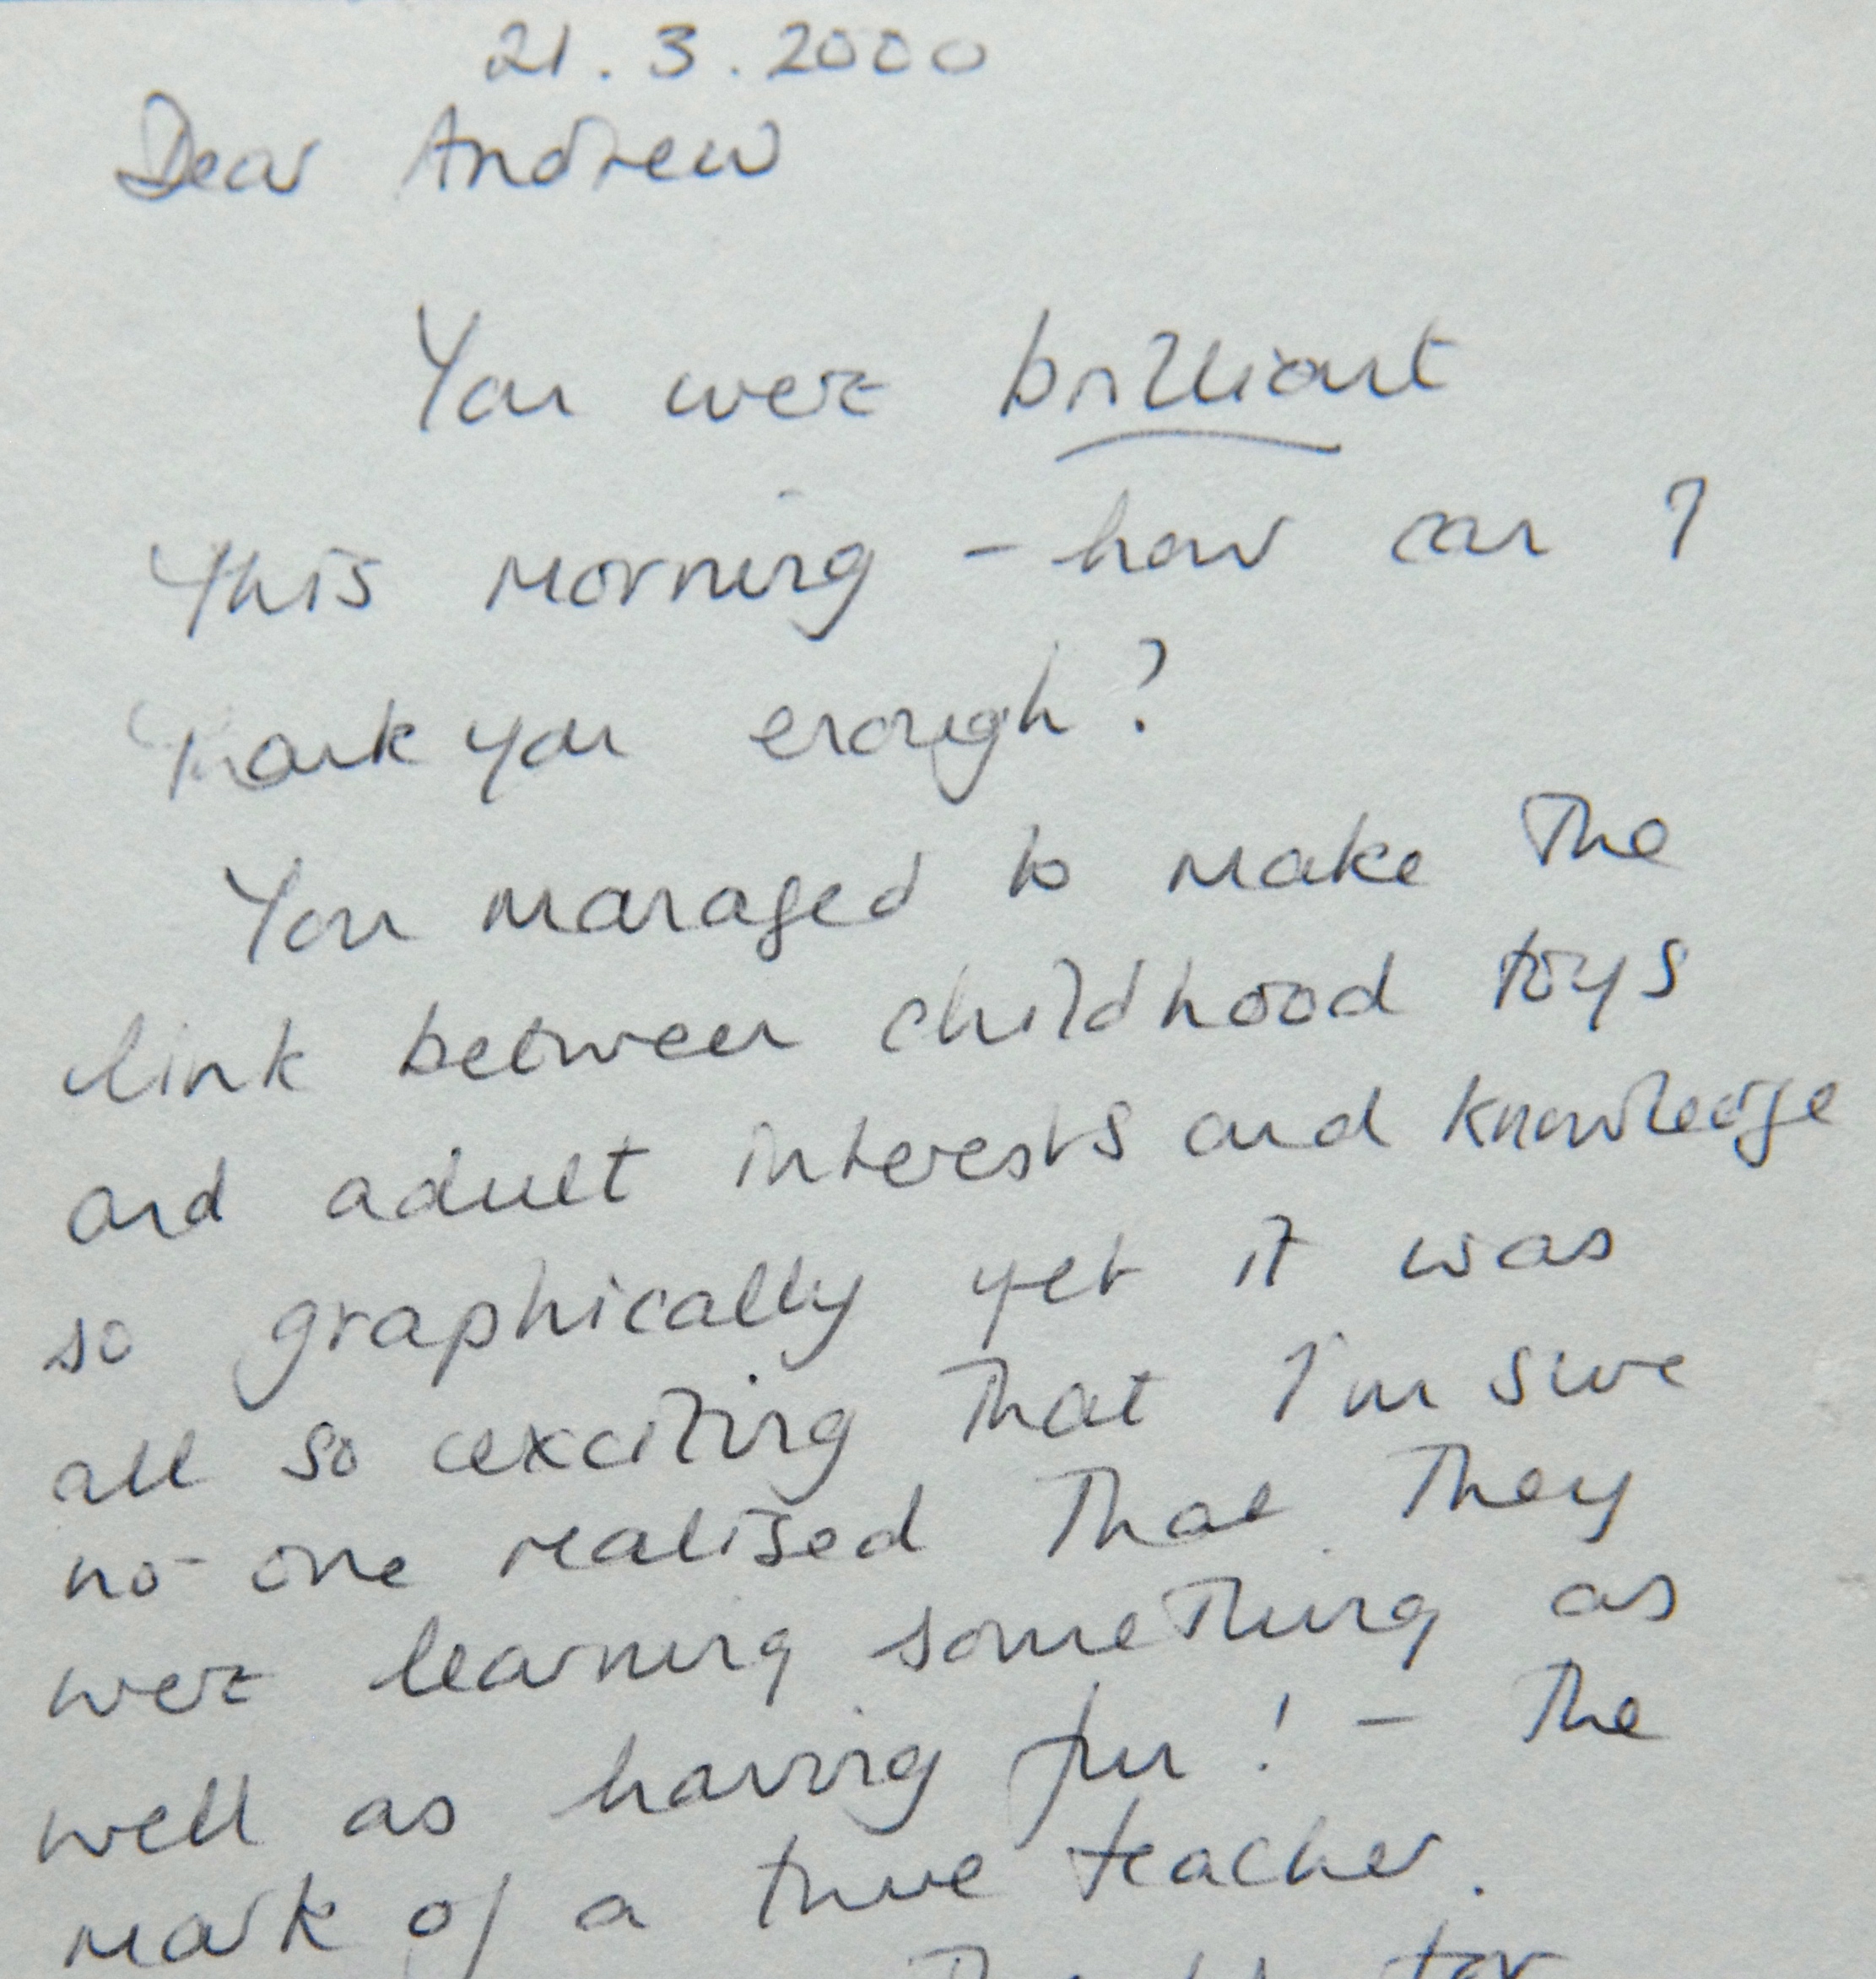 21.3.2000
Dear Andrew
You were brilliant
this morning - how can I
thank you enough?
You managed to make the
link between childhood toys
and adult interests and knowledge
so graphically yet it was
all so exciting that I'm sure
no-one realised that they
were learning something as
well as having fun! - The
mark of a true teacher.
for